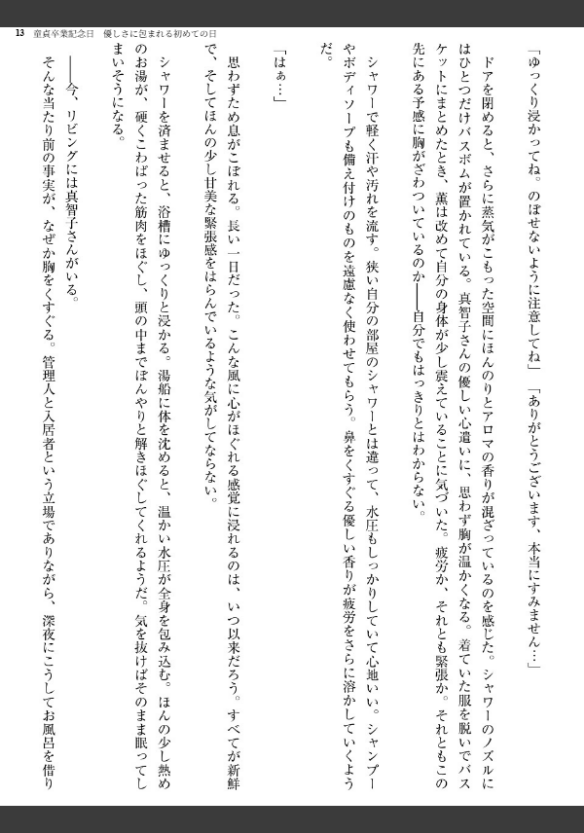 13　童貞卒業記念日　優しさに包まれる初めての日
「ゆっくり浸かってね。のぼせないように注意してね」「ありがとうございます、本当にすみません…」
ドアを閉めると、さらに蒸気がこもった空間にほんのりとアロマの香りが混ざっているのを感じた。シャワーのノズルに
はひとつだけバスボムが置かれている。真智子さんの優しい心遣いに、思わず胸が温かくなる。着ていた服を脱いでバス
ケットにまとめたとき、薫は改めて自分の身体が少し震えていることに気づいた。疲労か、それとも緊張か。それともこの
先にある予感に胸がざわついているのか――自分でもはっきりとはわからない。
シャワーで軽く汗や汚れを流す。狭い自分の部屋のシャワーとは違って、水圧もしっかりしていて心地いい。シャンプー
やボディソープも備え付けのものを遠慮なく使わせてもらう。鼻をくすぐる優しい香りが疲労をさらに溶かしていくよう
だ。
「はぁ…」
思わずため息がこぼれる。長い一日だった。こんな風に心がほぐれる感覚に浸れるのは、いつ以来だろう。すべてが新鮮
で、そしてほんの少し甘美な緊張感をはらんでいるような気がしてならない。
シャワーを済ませると、浴槽にゆっくりと浸かる。湯船に体を沈めると、温かい水圧が全身を包み込む。ほんの少し熱め
のお湯が、硬くこわばった筋肉をほぐし、頭の中までぼんやりと解きほぐしてくれるようだ。気を抜けばそのまま眠ってし
まいそうになる。
――今、リビングには真智子さんがいる。
そんな当たり前の事実が、なぜか胸をくすぐる。管理人と入居者という立場でありながら、深夜にこうしてお風呂を借り